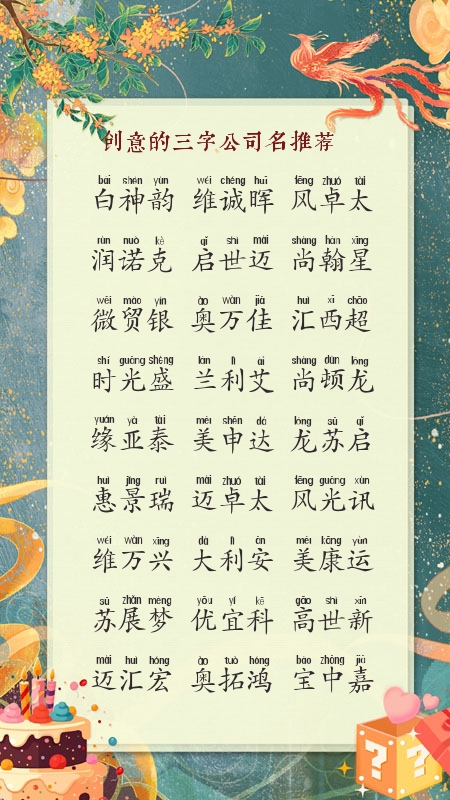 创意的三字公司名推荐
bái shén yùn wéi chéng huī fēng zhuó tài
白神韵 维诚晖 风卓太
rùn nuò kè qǐ shì mài shàng hàn xīng
润诺克 启世迈 尚翰星
wēi mào yín ào wàn jiā huì xī chāo
微贸银 奥万佳 汇西超
shí guāng shèng lán lì ài shàng dùn lóng
时光盛 兰利艾 尚顿龙
yuán yà tài měi shēn dá lóng sū qǐ
缘亚泰 美申达 龙苏启
huì jǐng ruì mài zhuó tài fēng guāng xùn
惠景瑞 迈卓太 风光讯
wéi wàn xīng dà lì ān měi kāng yùn
维万兴 大利安 美康运
sū zhǎn mèng yōu yí kē gāo shì xīn
苏展梦 优宜科 高世新
mài huì hóng ào tuò hóng bǎo zhōng jiā
迈汇宏 奥拓鸿 宝中嘉
? ?